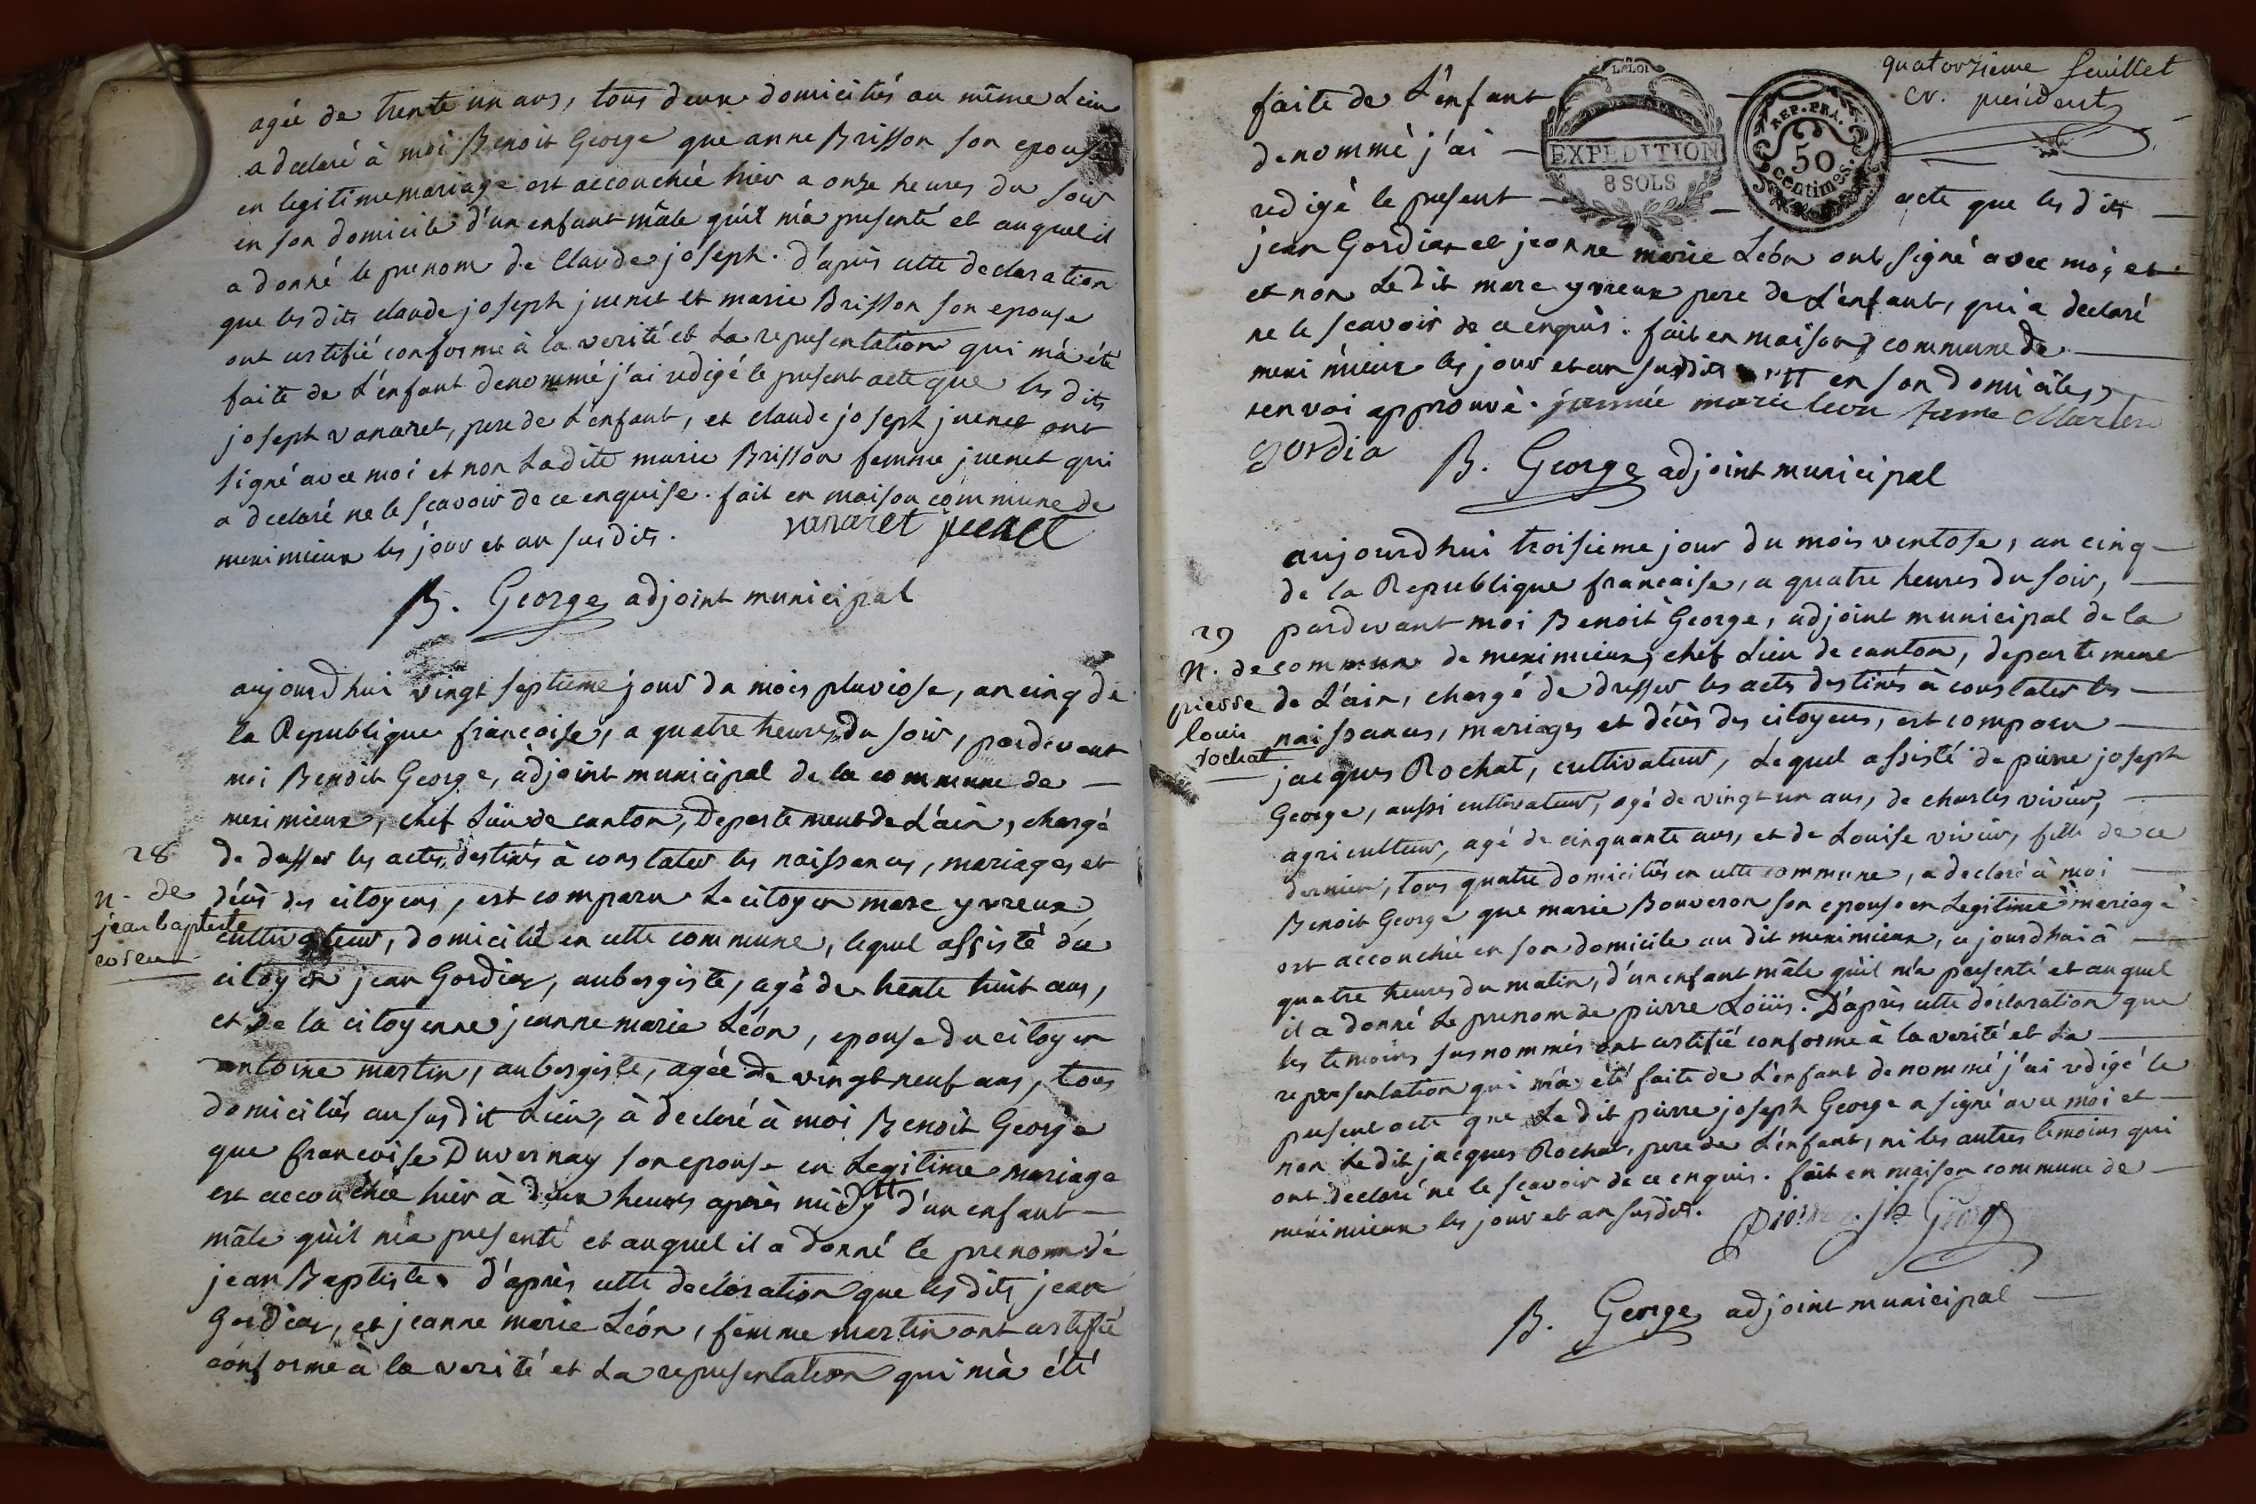 agée de trente un ans, tous deux domiciliés au même Lieu
a declaré à moi Benoit George que anne Brisson son epouse
en legitime mariage est accouchée hier a onze heures du soir
en son domicile d'un enfant mâle qu'il m'a presenté et auquel il
a donné le prenom de Claude joseph. d'après cette declaration
que les dits claude joseph juenet et marie Brisson son epouse
ont certifié conforme à la verité et La representation qui m'a été
faite de L'enfant denommé j'ai redigé le present acte que les dits
joseph vanaret, pere de L'enfant, et claude joseph juenet ont
signé avec moi et non Ladite marie Brisson femme juenet qui
a declaré ne le scavoir de ce enquise. fait en maison commune de
meximieux les jour et an susdits.
vanaret juenet
B. George adjoint municipal
aujourd'hui vingt septieme jour du mois pluviose, an cinq de
la Republique francoise, a quatre heures du soir, pardevant
moi Benoit George, adjoint municipal de la commune de
meximieux, chef Lieu de canton, Departement de L'ain, chargé
de dresser les actes destinés à constater les naissances, mariages et
décès des citoyens, est comparu Le citoyen marc yvreux
28
N. de
jean baptiste
cultivateur, domicilié en cette commune, lequel assisté du
citoyen jean Gordiat, aubergiste, agé de trente huit ans,
et de la citoyenne jeanne marie Léon, epouse du citoyen
antoine martin, aubergiste, agée de vingt neuf ans, tous
domiciliés au susdit Lieu, à declaré à moi Benoit George
que francoise Duvernay son epouse en Legitime mariage
est accouchée hier à deux heures après midy d'un enfant
mâle qu'il m'a presenté et auquel il a donné le prenom de
jean Baptiste. d'après cette declaration que les dits jean
Gordiat, et jeanne marie Léon, femme martin ont certifié
conforme à la verité et La representation qui m'a été
quatorzieme feuillet
president
LA LOI
EXPEDITION
8 SOLS
REP. FRA.
50
centimes.
faite de L'enfant
denommé j'ai
redigé le present acte que les dits
jean Gordiat et jeanne marie Léon ont signé avec moi, et
et non Le dit marc yvreux pere de L'enfant, qui a declaré
ne le scavoir de ce enquis. fait en maison commune de
meximieux les jour et an susdits en son domicile,
renvoi approuvé. jeanne marie leon fame Marten
gordia
B. George adjoint municipal
aujourd'hui troisieme jour du mois ventose, an cinq
de la Republique francaise, a quatre heures du soir,
pardevant moi Benoit George, adjoint municipal de la
29
N. de
pierre
louis
rochat
commune de meximieux, chef Lieu de canton, departement
de L'ain, chargé de dresser les actes destinés à constater les
naissances, mariages et décès des citoyens, est comparu
jacques Rochat, cultivateur, Lequel assisté de pierre joseph
George, aussi cultivateur, agé de vingt un ans, de charles vivier,
agriculteur, agé de cinquante ans, et de Louise vivier, fille de ce
dernier, tous quatre domiciliés en cette commune, a declaré à moi
Benoit George que marie Bouveron son epouse en Legitime mariage
est accouchée en son domicile au dit meximieux, ce jourd'hui à
quatre heures du matin, d'un enfant mâle qu'il m'a presenté et auquel
il a donné Le prenom de pierre Loüis. D'après cette déclaration que
les temoins susnommés ont certifié conforme à la verité et La
representation qui m'a été faite de L'enfant denommé j'ai redigé le
present acte que Le dit pierre joseph George a signé avec moi et
non Le dit jacques Rochat, pere de L'enfant, ni les autres temoins qui
ont declaré ne le scavoir de ce enquis. fait en maison commune de
meximieux les jour et an susdits.
B. George adjoint municipal